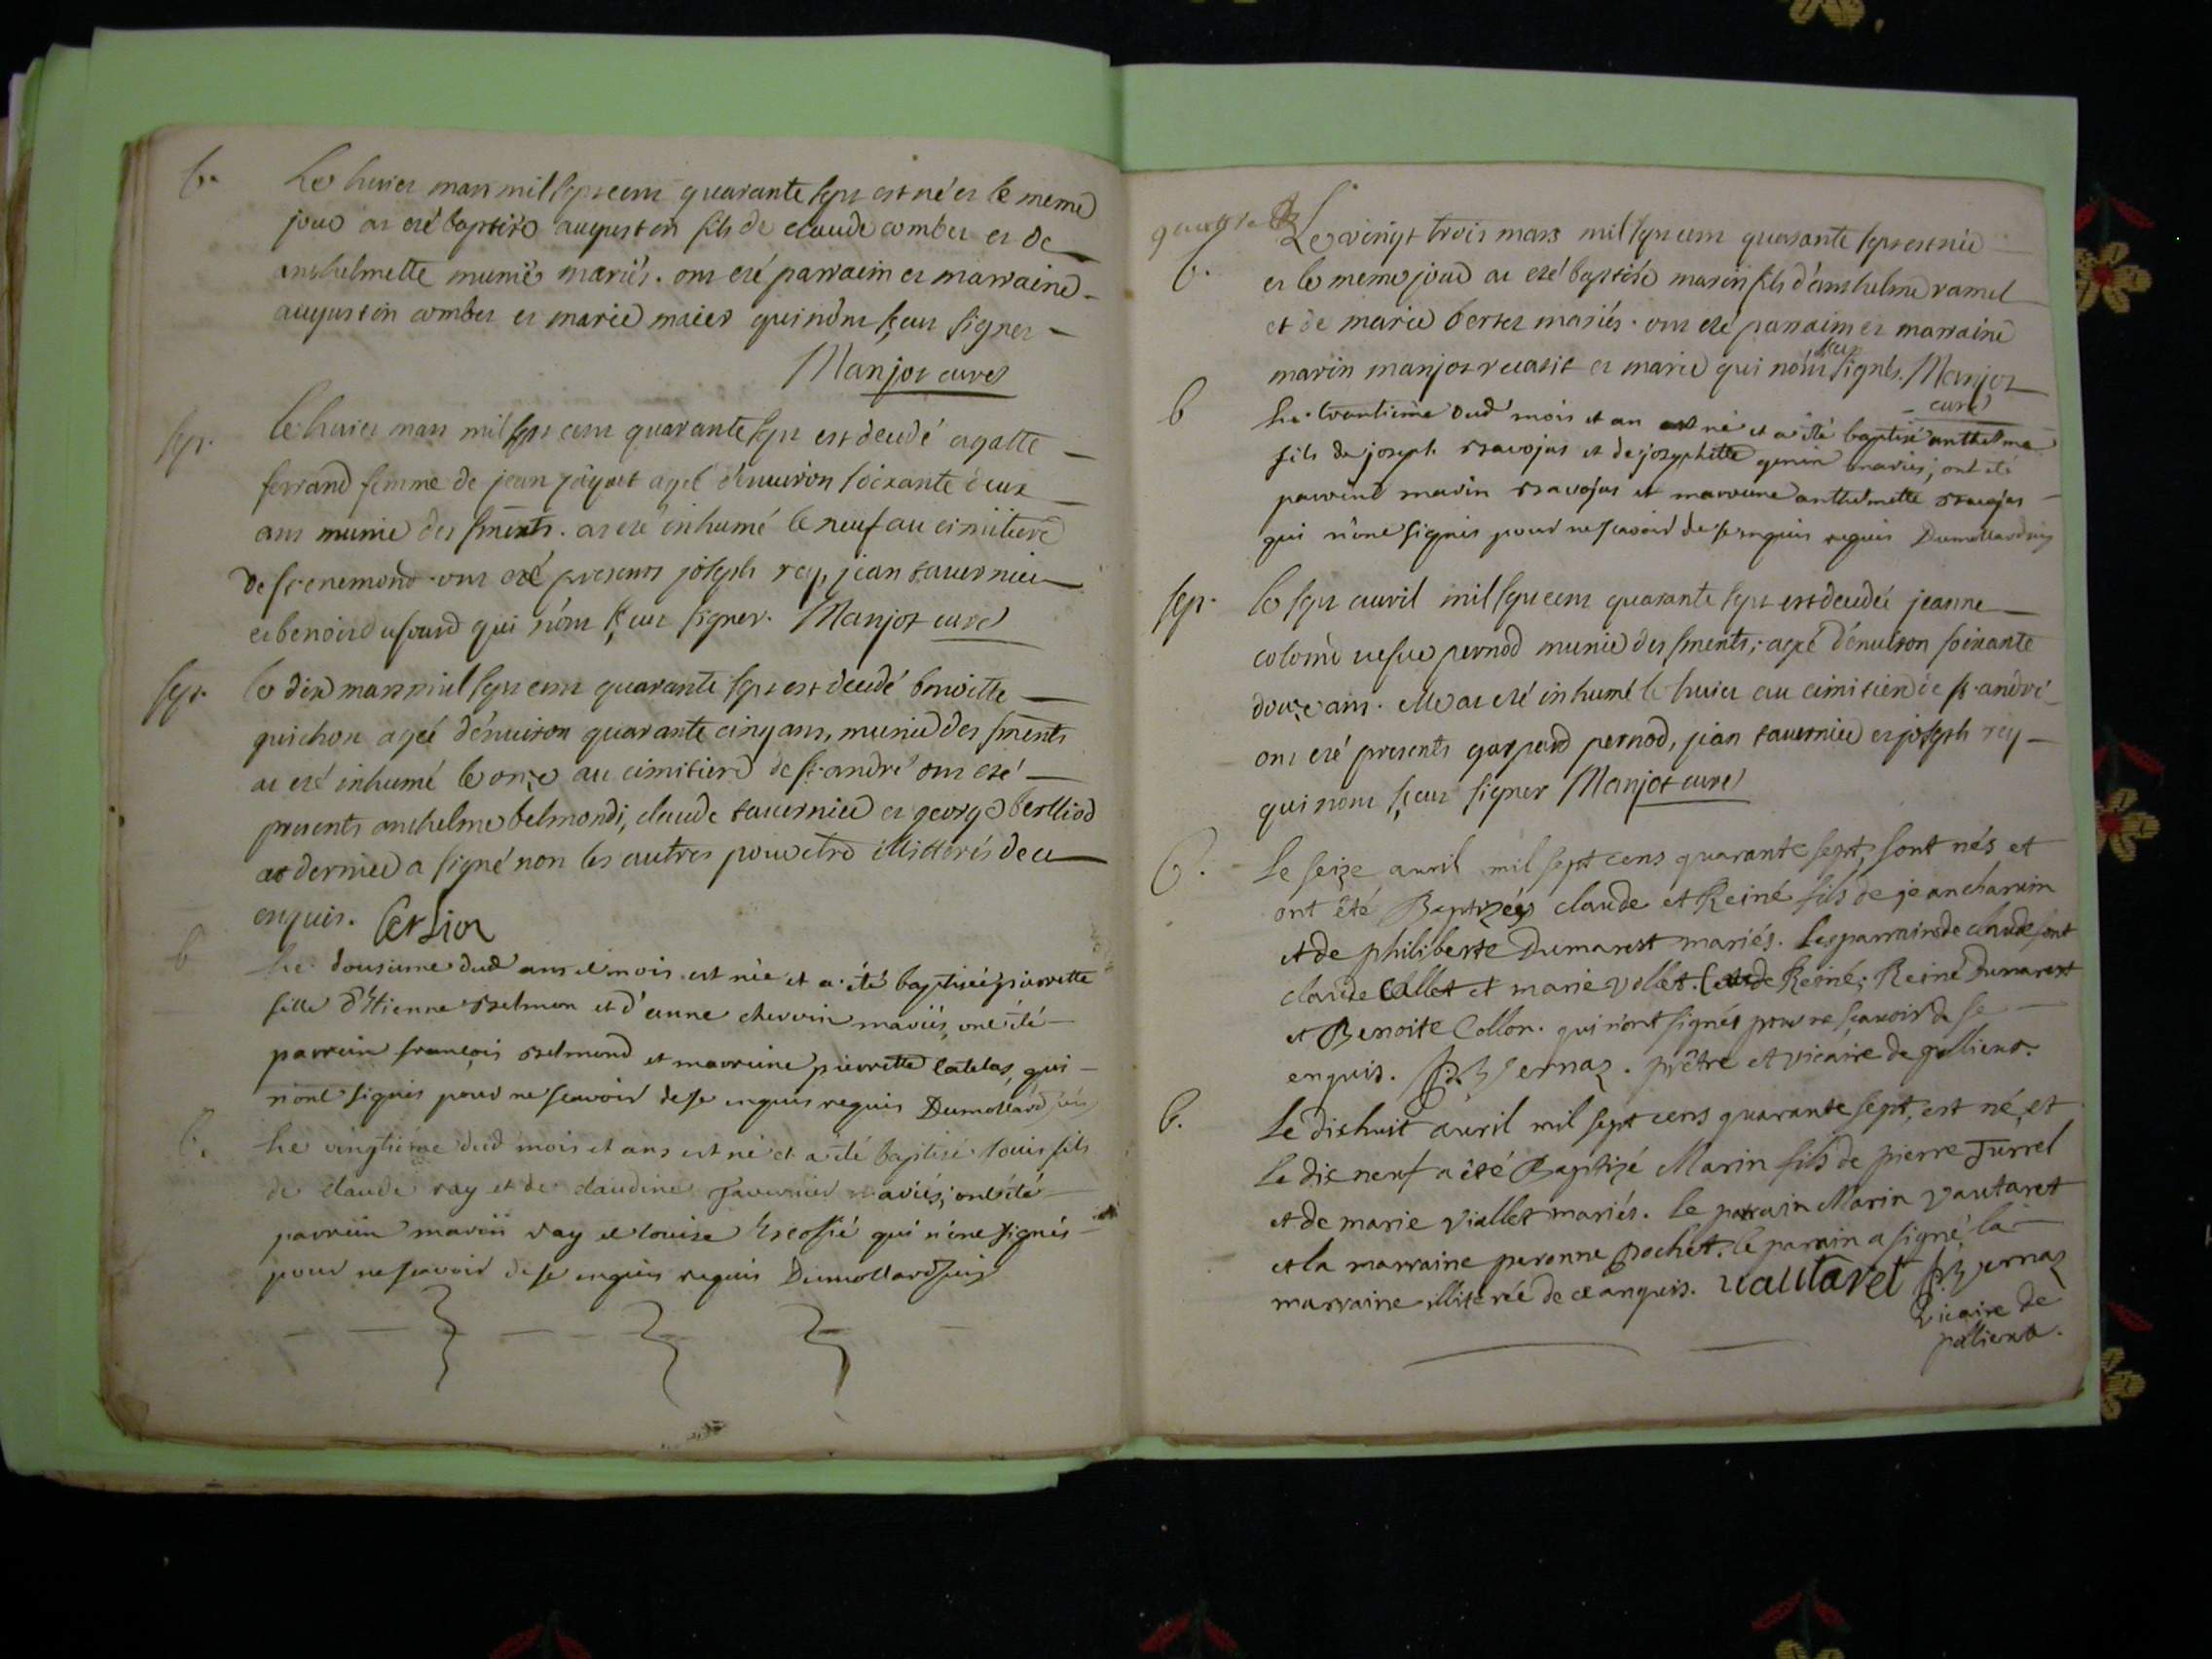 b. Le huict mars mil sept cent quarante sept est né et le meme
jour at eté baptisé augustin fils de claude combet et de
anthelmette munié mariés. ont eté parraim et marraine
augustin combet et marie maier qui nont sçeut signer
Manjot curé
sep. le huict mars mil sept cent quarante sept est decedé agatte
ferrand femme de jean jâquet agé d'enuiron soixante deux
ans munie des sments. at eté inhumé le neuf au cimitiere
de st. enemond. ont eté presents joseph rey, jean tauernier
et benoit dufourd qui n'ont sçeut signer. Manjot curé
sep. le dix mars mil sept cent quarante sept est decedé benoitte
guichon agée d'enuiron quarante cinq ans, munie des sments
at eté inhumé le onze au cimitiere de st. andré ont eté
presents anthelme belmondi, claude tauernier et george berlliod
dernier a signé non les autres pour etre illitérés de ce
enquis. berliot
b Le dousieme dud ans et mois est née et a été baptisée pierrette
fille d'Etienne Belmon et d'anne chervin mariés, ont été
parrein françois Belmond et marreine pierrette catelas, qui
n'ont signés pour ne scavoir de se enquis requis Dumollard
b. Le vingtieme dud mois et ans est né et a été baptisé louis fils
de claude ray et de claudine Tavernier mariés; ont été
parrein marin ray et louise Escoffié qui n'ont signés
pour ne scavoir de se enquis requis Dumollard
quattre
b. Le vingt trois mars mil sept cent quarante sept est née
et le meme jour at eté baptisé marin fils d'anthelme ramel
et de marie bertet mariés. ont eté parraim et marraine
marin manjot et marie qui nont sceu signés. Manjot
curé
b Le trantieme dud mois et an est né et a été baptisé anthelme
fils de joseph Bavojas et de josephette genin mariés; ont été
parreins marin Bavojas et marreine anthelmette Bavojas
qui n'ont signés pour ne scavoir de se enquis requis Dumollard
sep. le sept auril mil sept cent quarante sept est decedée jeanne
colomb uefue pernod munie des sments; agée d'enuiron soixante
douze ans. elle at eté inhumé le huict au cimitiere de st. andré
ont eté presents gaspard pernod, jean tauernier et joseph rey
qui nont sçeut signer Manjot curé
b. Le seize auril mil sept cens quarante sept, sont nés et
ont êté Baptizées claude et Reiné fils de jean charvin
et de philiberte Dumarest mariés. Les parrains de claude sont
claude Collet et marie vollet. de Reiné; Reiné Dumarest
et Benoite Collon. qui n'ont signés pour ne sçauoir de se
enquis. Bernaz. prêtre et vicaire de polliena.
b. Le dixhuit auril mil sept cens quarante sept, est né, et
le dix neuf a êté Baptizé Marin fils de pierre Turrel
et de marie viallet mariés. le parrain Marin vautaret
et la marraine peronne pochet. le parrain a signé, la
marraine illiterée de ce anquis. uautaret Bernaz
Vicaire de
polliena.